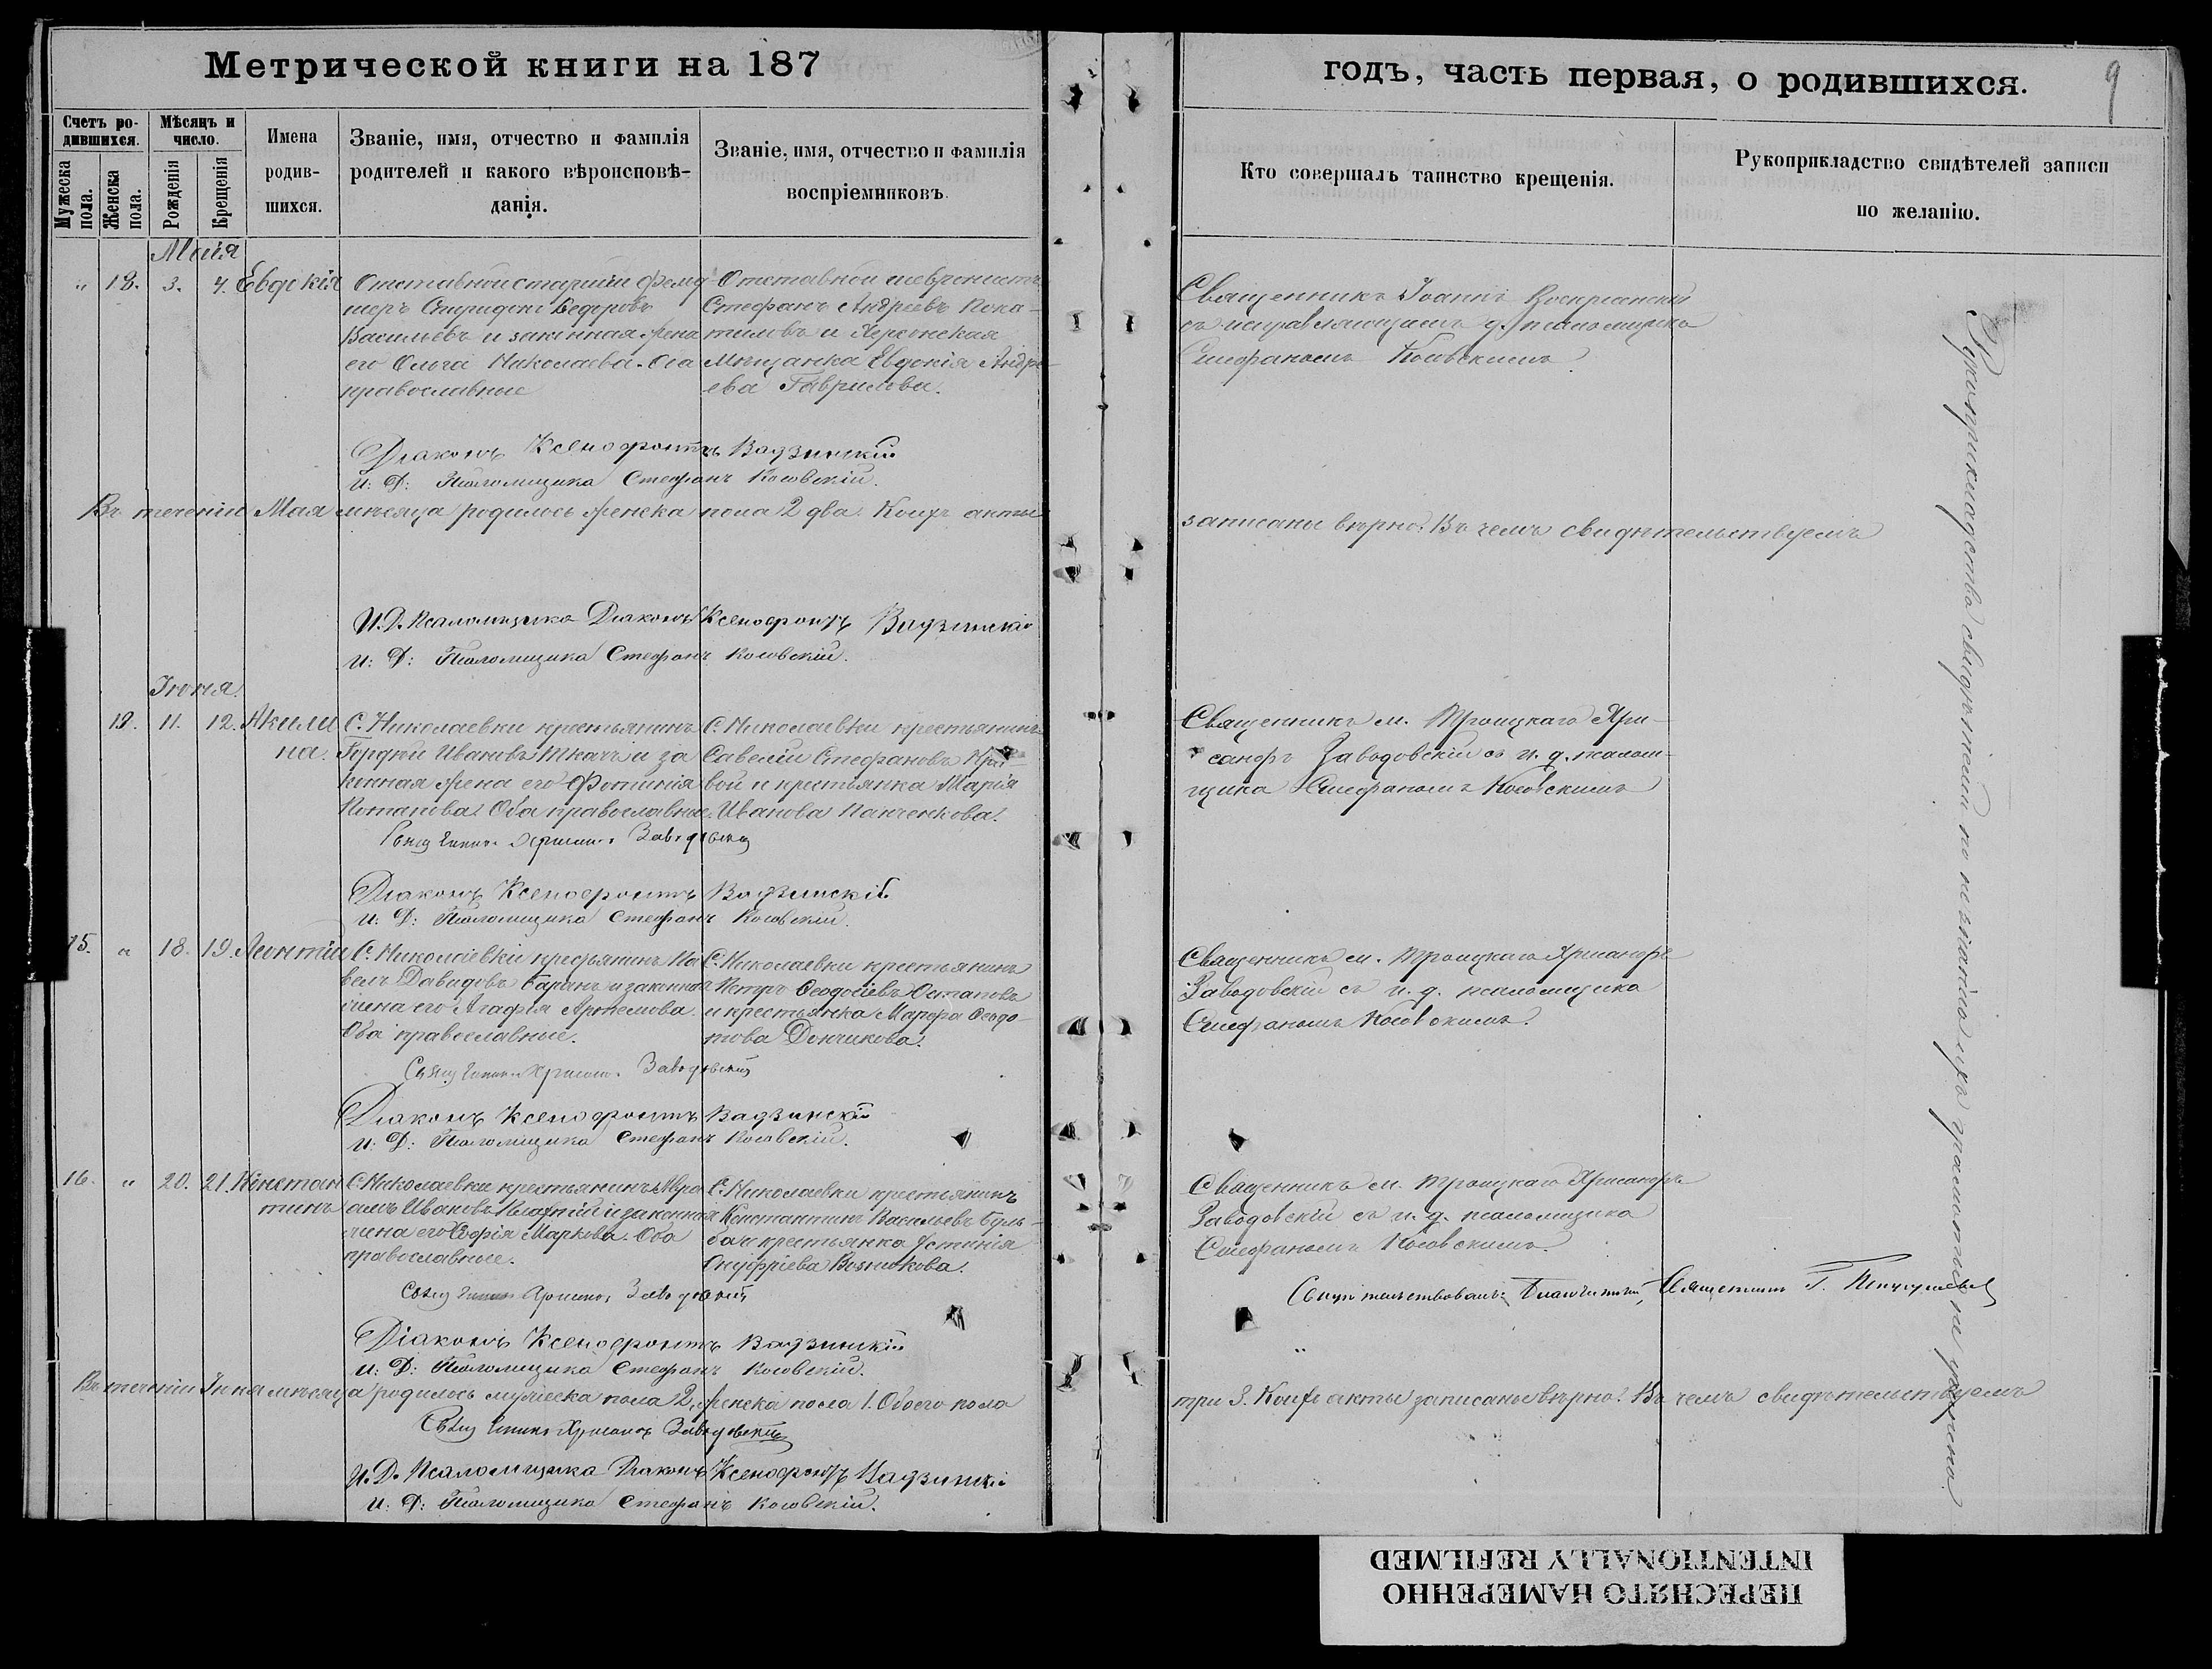 Метрической книги на 187
годъ, часть первая, о родившихся.
9
Счетъ ро-
дившихся.
Мѣсяцъ и
число.
Имена
родив-
шихся.
Званіе, имя, отчество и фамилія
родителей и какого вѣроисповѣ-
данія.
Званіе, имя, отчество и фамилія
воспріемниковъ.
Мужеска
пола.
Женска
пола.
Рожденія
Крещенія
Кто совершалъ таинство крещенія.
Рукоприкладство свидѣтелей записи
по желанію.
Маія
" 18. 3. 4. Евдокія
Отставной старшій фельд
шеръ Спиридонъ Ѳедоровъ
Васильевъ и законная жена
его Ольга Николаева. Оба
православные
Отставной
Стефанъ Андреевъ
и Херсонская
Мѣщанка Евдокія Андре-
ева Гаврилова.
Священникъ Іоаннъ Воскресенскій
съ исправляющимъ д. псаломщика
Стефаномъ Косовскимъ.
Діаконъ Ксенофонтъ Вадзинскій
И: Д: Псаломщика Стефанъ Косовскій.
Въ теченіи Мая мѣсяца родилось женска пола 2 два. Коихъ акты
записаны вѣрно. Въ чемъ свидѣтельствуемъ
И. Д. Псаломщика Діаконъ Ксенофонтъ Вадзинскій
И: Д: Псаломщика Стефанъ Косовскій.
Іюня.
19. 11. 12. Акили
на.
С. Николаевки крестьянинъ
Гордѣй Ивановъ Ткачъ и за
конная жена его Фотинія
Потапова. Оба православные.
С. Николаевки крестьянинъ
Савелій Стефановъ Кри-
вой и крестьянка Марія
Иванова Панченкова.
Священникъ м. Троицкаго Хри-
санфъ Заводовскій съ и. д. псалом-
щика Стефаномъ Косовскимъ
Священникъ Хрисанфъ Заводовскій
Діаконъ Ксенофонтъ Вадзинскій
И: Д: Псаломщика Стефанъ Косовскій.
15. " 18. 19. Леонтій
С. Николаевки крестьянинъ Па
велъ Давидовъ Баранъ и законная
жена его Агафія Артемова.
Оба православные.
С. Николаевки крестьянинъ
Петръ Ѳеодосіевъ Остаповъ
и крестьянка Марфа Ѳеодо-
това Дончикова.
Священникъ м. Троицкаго Хрисанфъ
Заводовскій съ и. д. псаломщика
Стефаномъ Косовскимъ.
Священникъ Хрисанфъ Заводовскій
Діаконъ Ксенофонтъ Вадзинскій
И: Д: Псаломщика Стефанъ Косовскій.
16. " 20. 21. Констан
тинъ
С. Николаевки крестьянинъ
Ивановъ и законная
жена его Софія Маркова. Оба
православные.
С. Николаевки крестьянинъ
Константинъ Васильевъ Буль-
ба и крестьянка Устинія
Онуфріева Вознюкова.
Священникъ м. Троицкаго Хрисанфъ
Заводовскій съ и. д. псаломщика
Стефаномъ Косовскимъ.
Священникъ Хрисанфъ Заводовскій
Свидѣтельствовалъ: Благочинный, Священникъ Г.
Діаконъ Ксенофонтъ Вадзинскій
И: Д: Псаломщика Стефанъ Косовскій.
Въ теченіи Іюня мѣсяца родилось мужеска пола 2, женска пола 1. Обоего пола
три 3. Коихъ акты записаны вѣрно. Въ чемъ свидѣтельствуемъ
Священникъ Хрисанфъ Заводовскій
И. Д. Псаломщика Діаконъ Ксенофонтъ Вадзинскій
И: Д: Псаломщика Стефанъ Косовскій.
Рукоприкладства свидѣтелей по незнанію ихъ грамоты не учинено.
ПЕРЕСНЯТО НАМЕРЕННО
INTENTIONALLY REFILMED